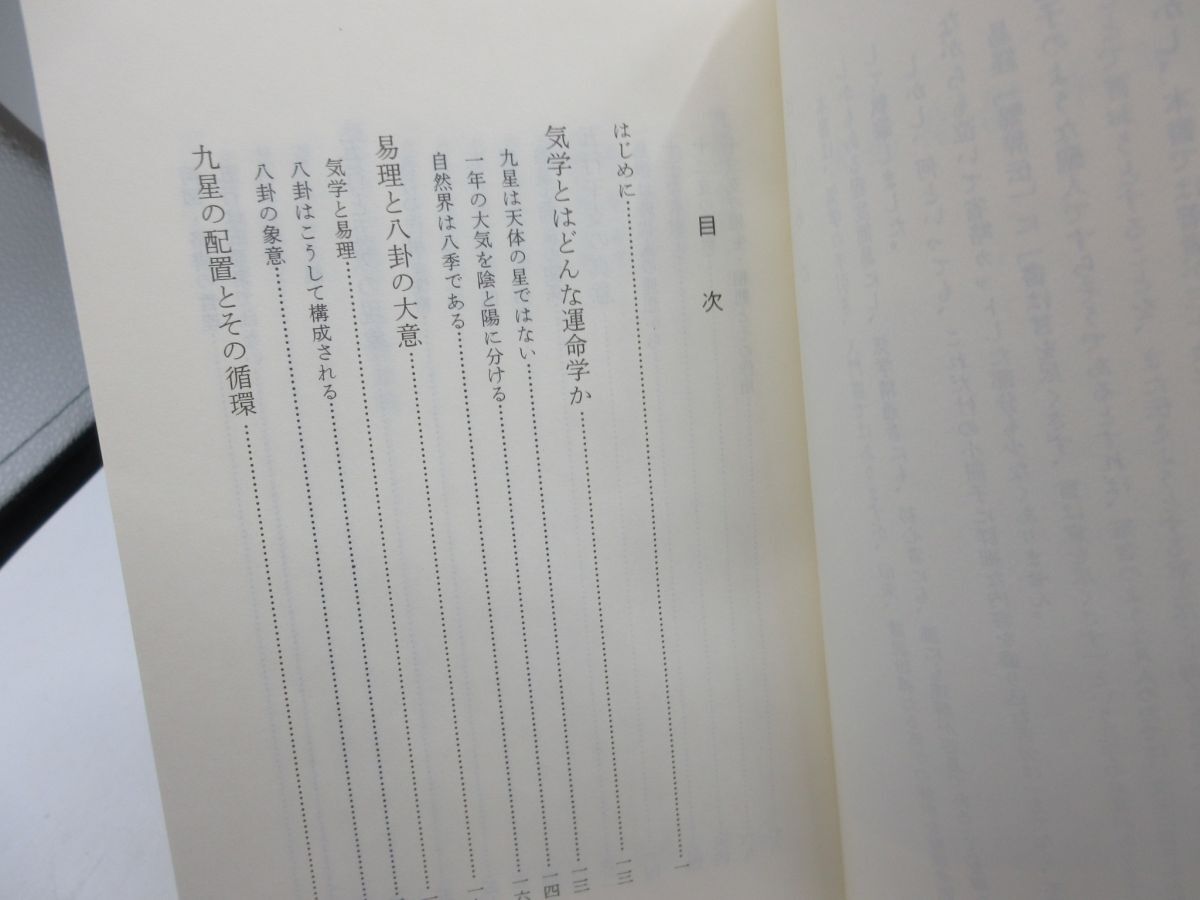 目次
はじめに……一
気学とはどんな運命学か……一三
九星は天体の星ではない……一三
一年の大気を陰と陽に分ける……一四
自然界は八季である……一六
易理と八卦の大意
気学と易理
八卦はこうして構成される
八卦の象意
九星の配置とその循環